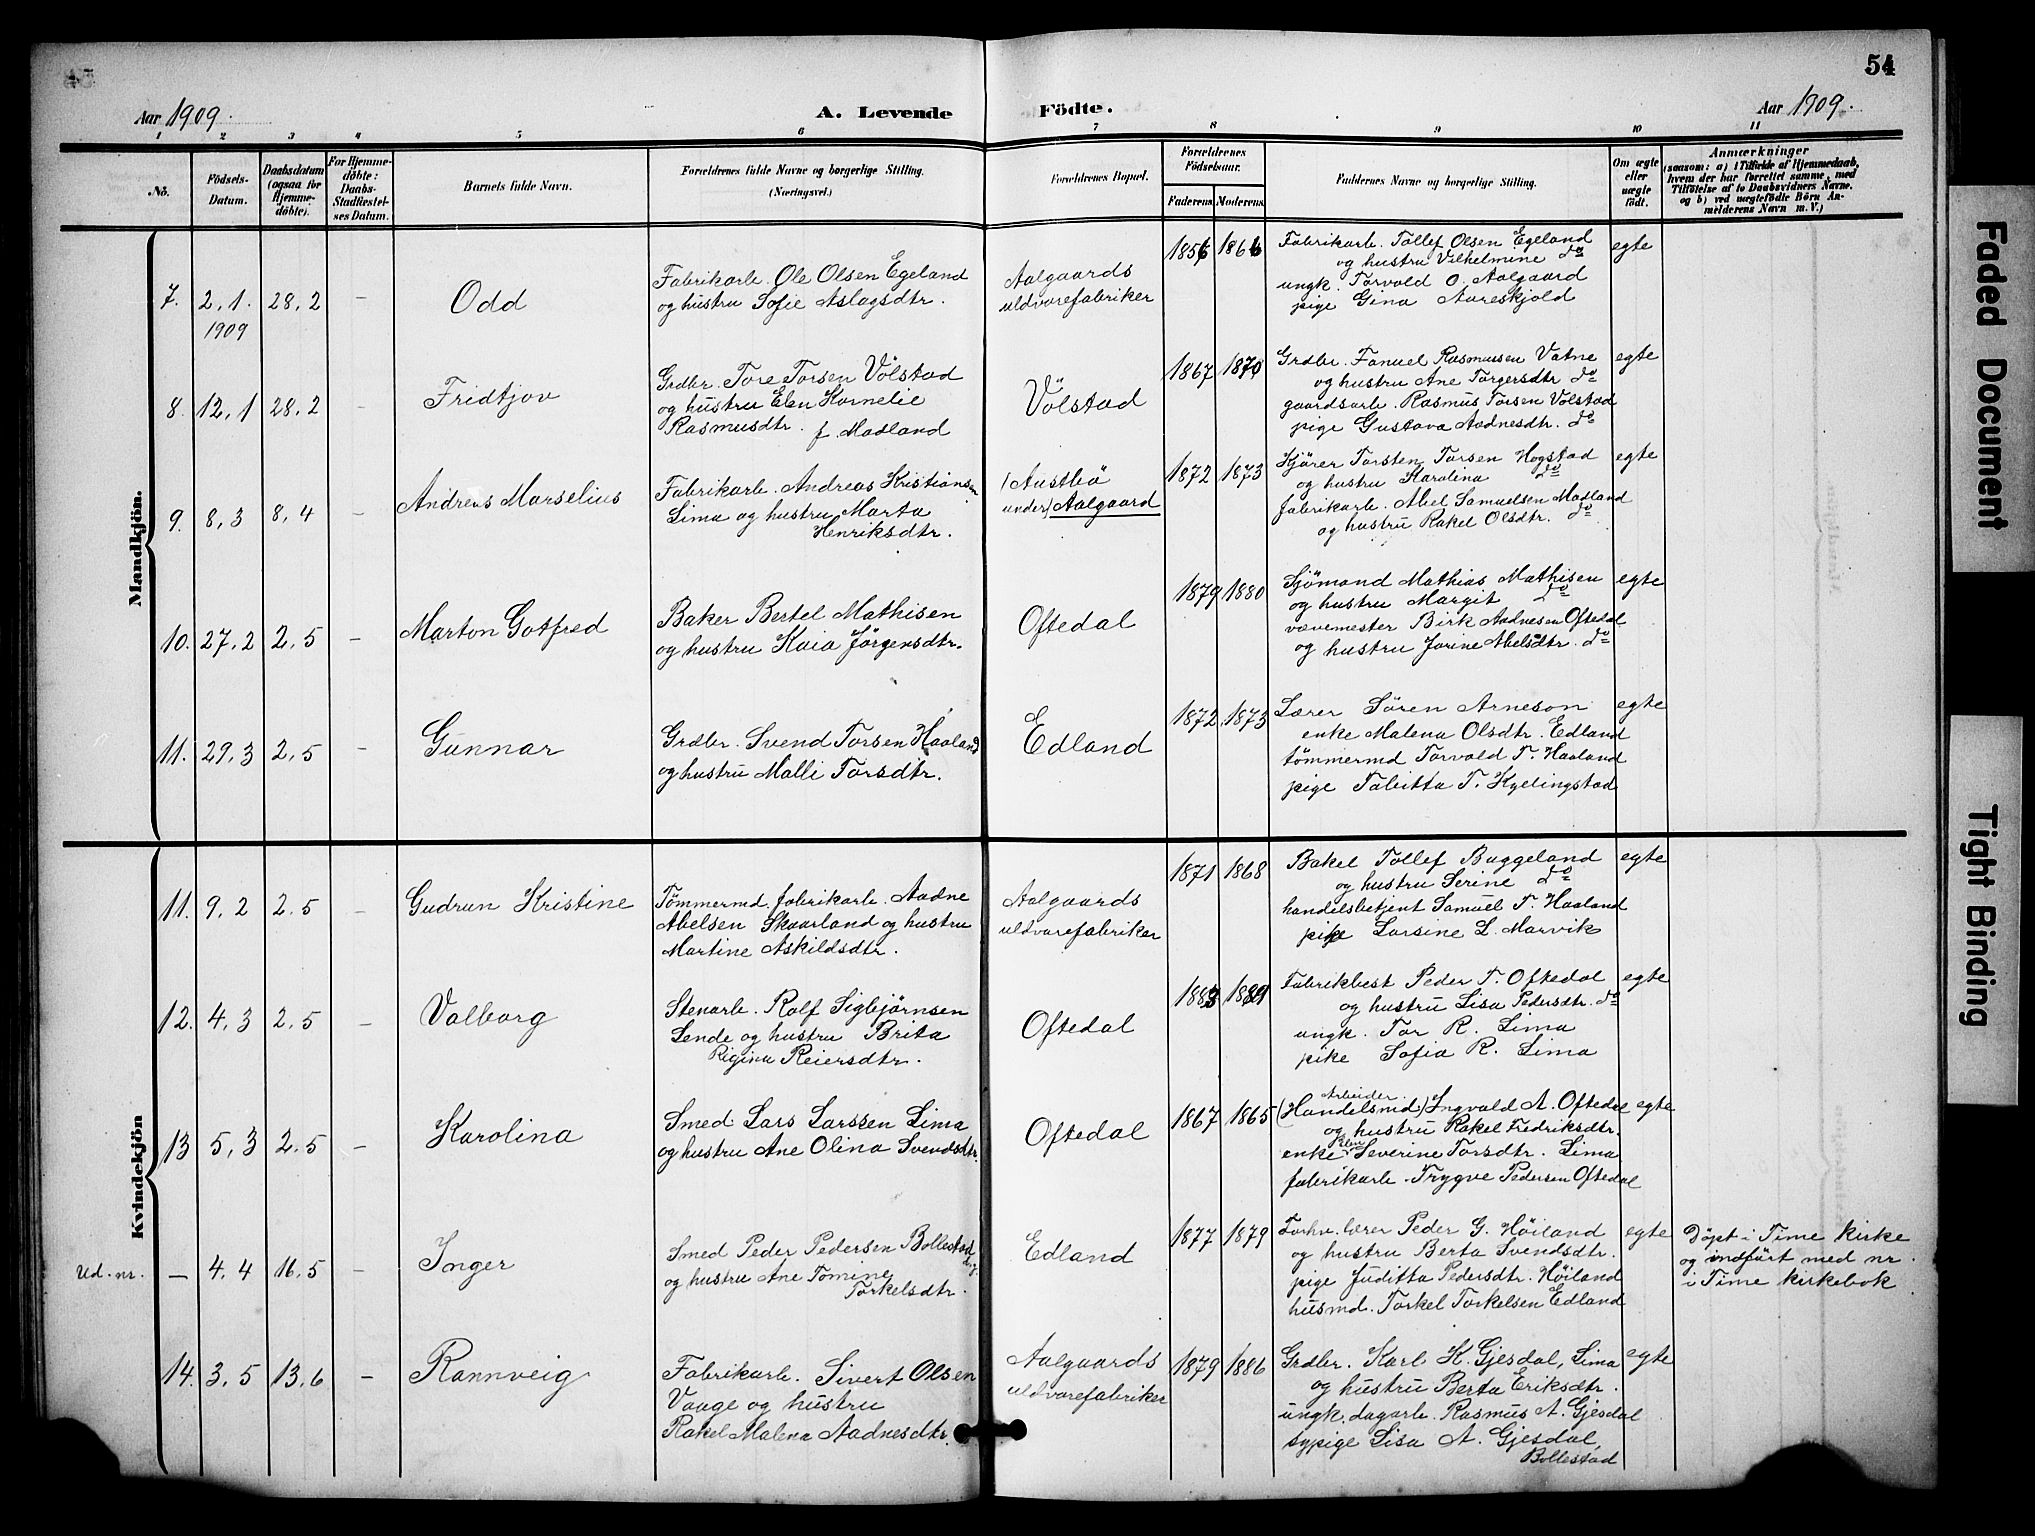 54
Aar 1909.
A. Levende Födte.
Aar 1909.
1 2 3 4 5 6 7 8 9 10 11
No.
Födsels-
Datum.
Daabsdatum
(ogsaa for
Hjemme-
döbte).
For Hjemme-
döbte:
Daabs-
Stadfæstel-
ses Datum.
Barnets fulde Navn.
Forældrenes fulde Navne og borgerlige Stilling.
(Næringsvei.)
Forældrenes Bopæl.
Forældrenes
Födselsaar.
Faderens Moderens
Faddernes Navne og borgerlige Stilling.
Om ægte
eller
uægte
födt.
Anmærkninger
(saasom: a) i Tilfælde af Hjemmedaab,
hvem der har forrettet samme, med
Tilföielse af to Daabsvidners Navne.
og b) ved uægtefödte Börn An-
melderens Navn m. V.)
Mandkjön.
7. 2,1. 1909 28,2 – Odd
Fabrikarb. Ole Olsen Egeland
og hustru Sofie Aslagsdtr.
Aalgaards
uldvarefabriker
1856 1866
Fabrikarb. Tollef Olsen Egeland
og hustru Vilhelmine do
ungk. Torvald O. Aalgaard
pige Gina Aareskjold
egte
8. 12,1 28,2 – Fridtjov
Grdbr. Tore Torsen Völstad
og hustru Elen Kornelie
Rasmusdtr. f. Madland
Völstad
1867 1870
Grdbr. Fanuel Rasmussen Vatne
og hustru Ane Torgersdtr do
gaardsarb. Rasmus Torsen Völstad
pige Gustava Aadnesdtr. do
egte
9. 8,3 8,4 – Andreas Marselius
Fabrikarb. Andreas Kristiansen
Lima og hustru Marta
Henriksdtr.
(Austbö
under) Aalgaard
1872 1873
Kjörer Torsten Torsen Hogstad
og hustru Karolina do
fabrikarb. Abel Samuelsen Madland
og hustru Rakel Olsdtr. do
egte
10. 27,2 2,5 – Marton Gotfred
Baker Bertel Mathisen
og hustru Kaia Jörgensdtr.
Oftedal
1879 1880
Sjömand Mathias Mathisen
og hustru Margit do
vævemester Birk Aadnesen Oftedal
og hustru Jorine Abelsdtr. do
egte
11. 29,3 2,5 – Gunnar
Grdbr. Svend Torsen Haaland
og hustru Malli Torsdtr.
Edland
1872 1873
Lærer Sören Arneson
enke Malena Olsdtr. Edland
tömmermd Torvald T. Haaland
pige Tabitta T. Kyllingstad
egte
Kvindekjön
11. 9,2 2,5 – Gudrun Kristine
Tömmermd. fabrikarb. Aadne
Abelsen Skaarland og hustru
Martine Askildsdtr.
Aalgaards
uldvarefabriker
1871 1868
Bakel Tollef Buggeland
og hustru Serine do
handelsbetjent Samuel T. Haaland
pike Larsine L. Marvik
egte
12. 4,3 2,5 – Valborg
Stenarb. Rolf Sigbjörnsen
Lende og hustru Brita
Rigina Reiersdtr.
Oftedal
1883 1889
Fabrikbest Peder T. Oftedal
og hustru Lisa Pedersdtr. do
ungk. Tor R. Lima
pike Sofia R. Lima
egte
13 5,3 2,5 – Karolina
Smed Lars Larssen Lima
og hustru Ane Olina Svendsdtr.
Oftedal
1867 1865
Arbeider
(Handelsmd) Ingvald A. Oftedal
og hustru Rakel Fredriksdtr.
enke Elen Severine Torsdtr. Lima
fabrikarb. Trygve Pedersen Oftedal
egte
Ud. nr. – 4,4 16,5 – Inger
Smed Peder Pedersen Bollestad
og hustru Ane Tomine
Torkelsdtr.
Edland
1877 1879
Forhv. lærer Peder G. Höiland
og hustru Berta Svendsdtr.
pige Juditta Pedersdtr. Höiland
husmd. Torkel Torkelsen Edland
egte
Döpt i Time kirke
og indfört med nr.
i Time kirkebok
14. 3,5 13,6 – Rannveig
Fabrikarb. Sivert Olsen
Vaage og hustru
Rakel Malena Aadnesdtr
Aalgaards
uldvarefabriker
1879 1886
Grdbr. Karl K. Gjesdal, Lima
og hustru Berta Eriksdtr.
ungk. dagarb. Rasmus A. Gjesdal
sypige Lisa A. Gjesdal,
Bollestad
egte
Faded Document
Tight Binding